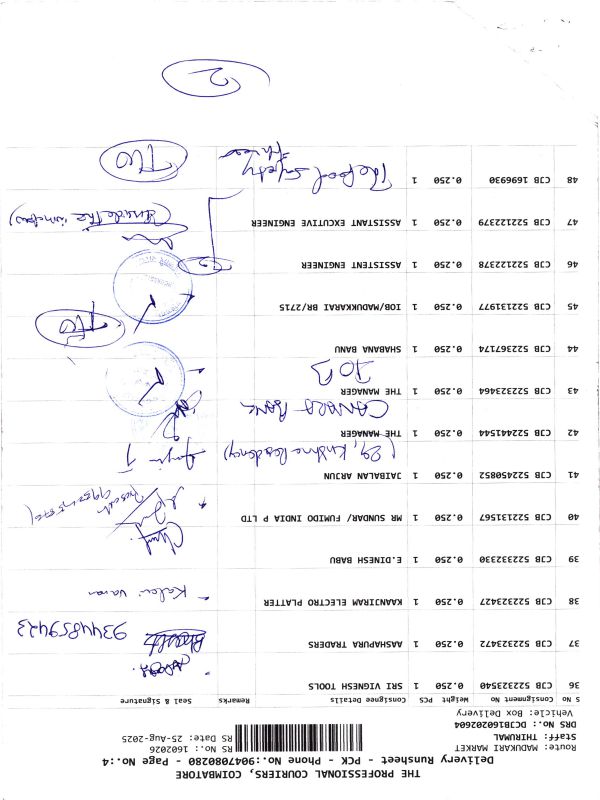 THE PROFESSIONAL COURIERS, COIMBATORE
Delivery Runsheet - PCK - Phone No.:9047080280 - Page No.:4
Route: MADUKARI MARKET
Staff: THIRUMAL
DRS No.: DCJB1602026O4
Vehicle: Box Delivery
RS No.: 1602026
RS Date: 25-Aug-2025
S No Consignment No Weight PCS Consignee Details Remarks Seal & Signature
36 CJB 522323540 0.250 1 SRI VIGNESH TOOLS
37 CJB 522323472 0.250 1 AASHAPURA TRADERS 9344859423
38 CJB 522323427 0.250 1 KAANJIRAM ELECTRO PLATTER Kalai varan
39 CJB 522332330 0.250 1 E.DINESH BABU
40 CJB 522131567 0.250 1 MR SUNDAR/ FUMIDO INDIA P LTD
41 CJB 522450852 0.250 1 JAIBALAN ARJUN (29, Krishna Residency)
42 CJB 522441544 1 THE MANAGER CANARA BANK
43 CJB 522323464 0.250 1 THE MANAGER IOB
44 CJB 522367174 0.250 1 SHABANA BANU
45 CJB 522131977 0.250 1 IOB/MADUKKARAI BR/2715
46 CJB 522122378 0.250 1 ASSISTENT ENGINEER
47 CJB 522122379 0.250 1 ASSISTANT EXCUTIVE ENGINEER
48 CJB 1696930 0.250 1 The food safety